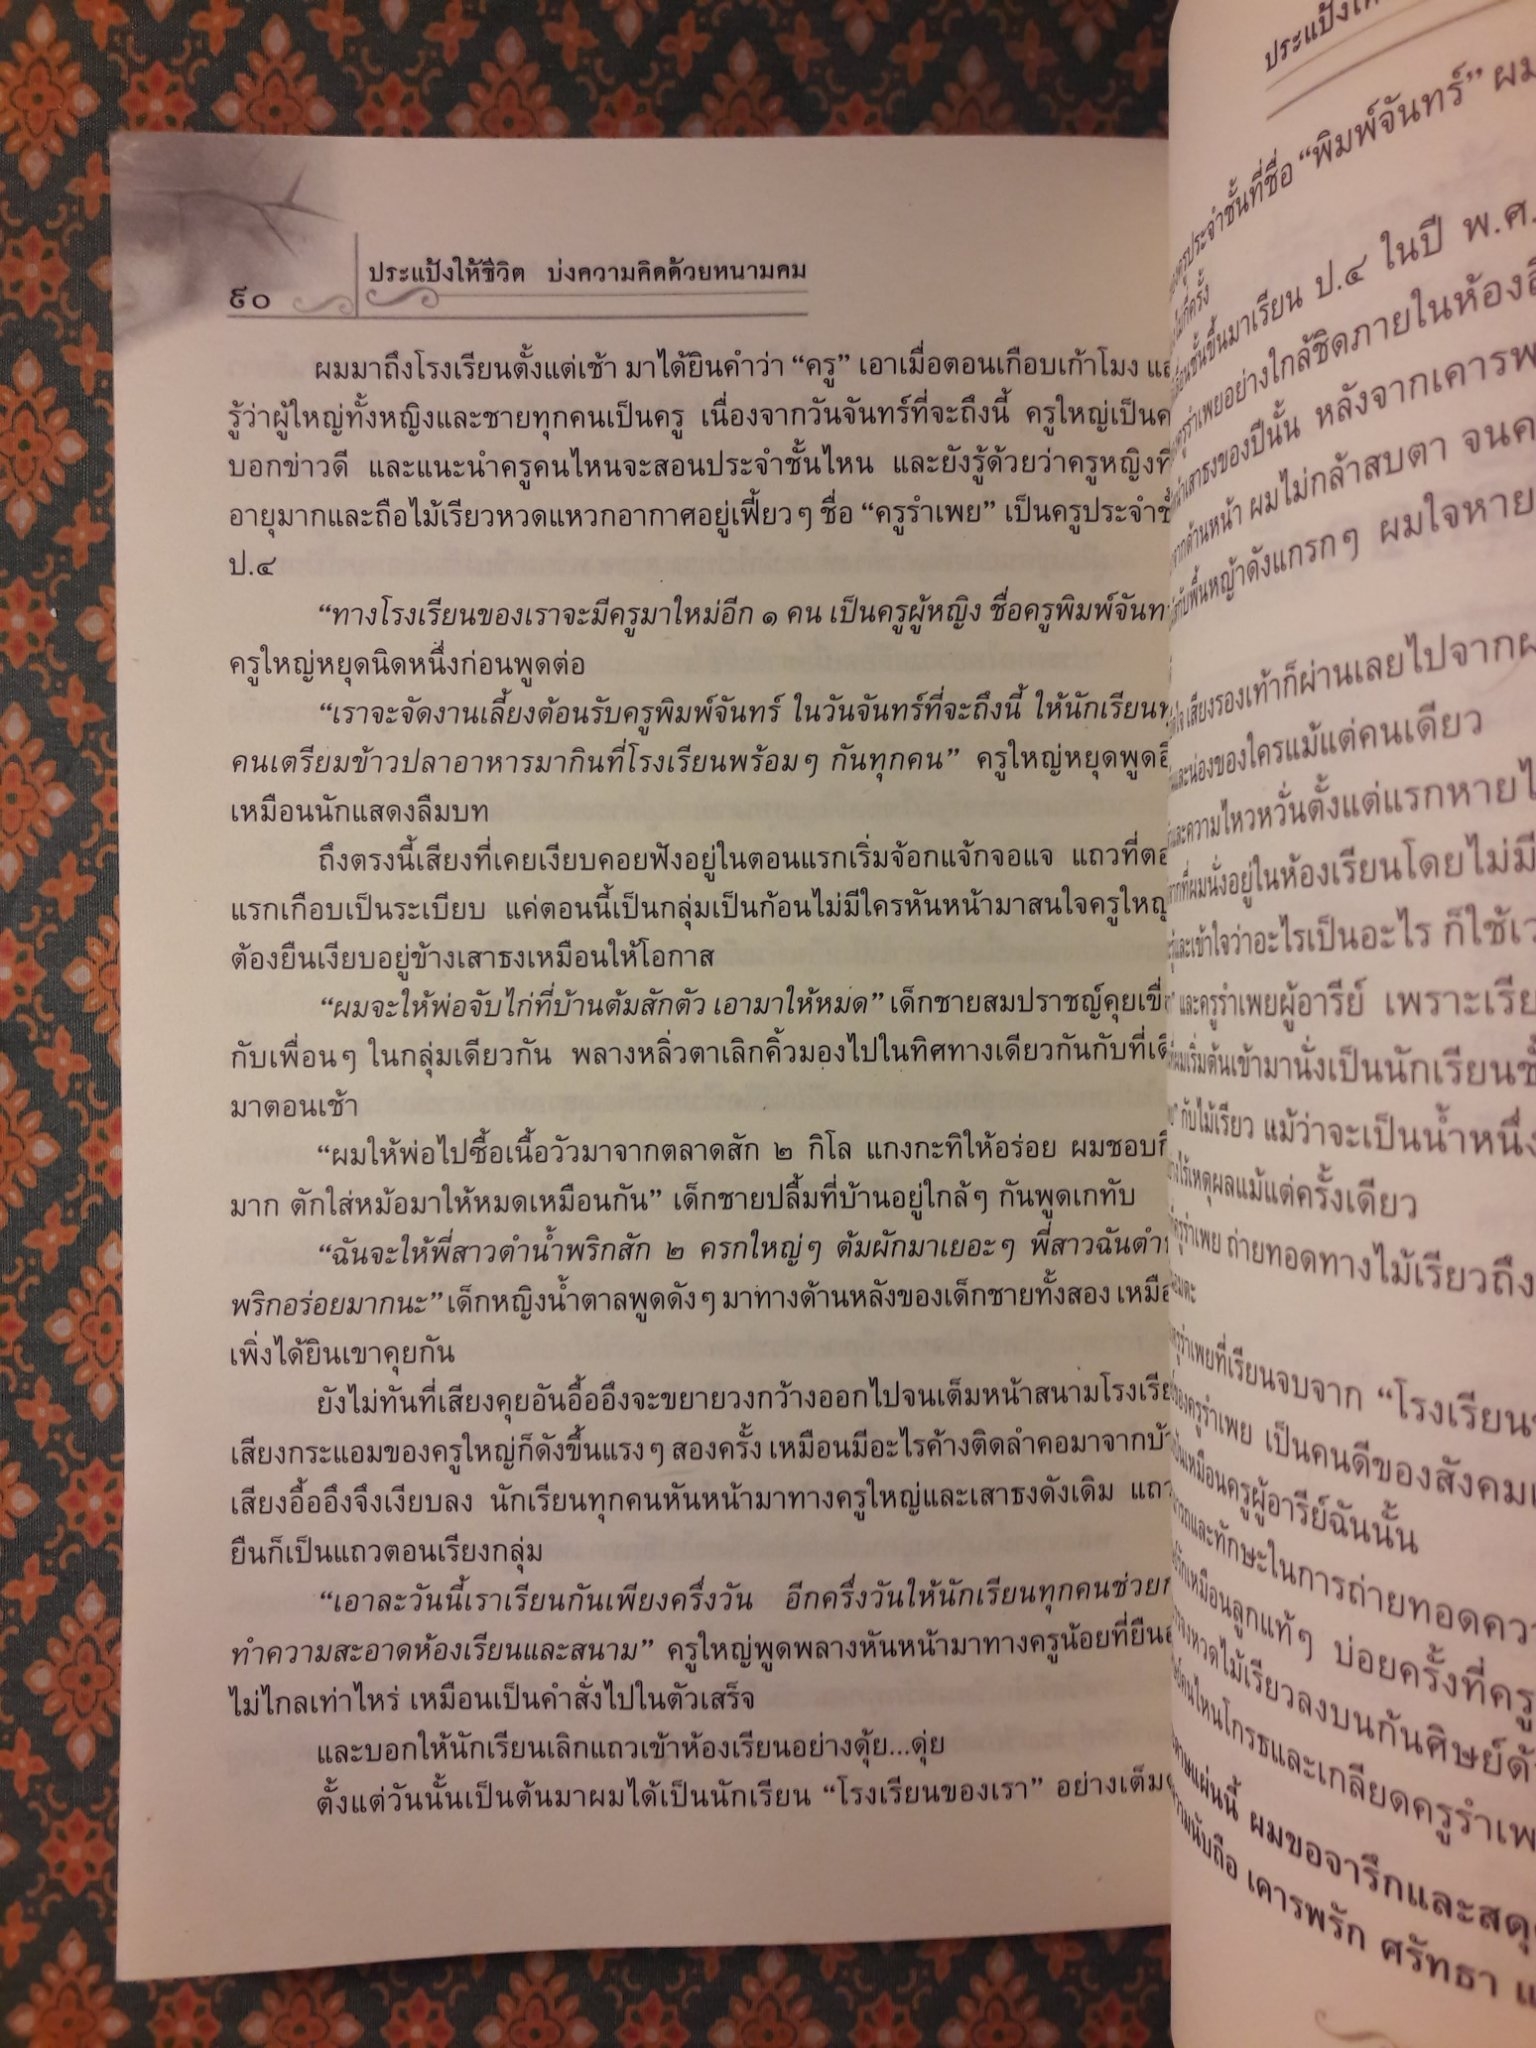 ๙๐
ประแป้งให้ชีวิต บ่งความคิดด้วยหนามคม
ผมมาถึงโรงเรียนตั้งแต่เช้า มาได้ยินคำว่า “ครู” เอาเมื่อตอนเกือบเก้าโมง
รู้ว่าผู้ใหญ่ทั้งหญิงและชายทุกคนเป็นครู เนื่องจากวันจันทร์ที่จะถึงนี้ ครูใหญ่เป็น
บอกข่าวดี และแนะนำครูคนไหนจะสอนประจำชั้นไหน และยังรู้ด้วยว่าครูหญิงที่
อายุมากและถือไม้เรียวหวดแหวกอากาศอยู่เฟี้ยวๆ ชื่อ “ครูรำเพย” เป็นครูประจำ
ป.๔
“ทางโรงเรียนของเราจะมีครูมาใหม่อีก ๑ คน เป็นครูผู้หญิง ชื่อครูพิมพ์จันทร์
ครูใหญ่หยุดนิดหนึ่งก่อนพูดต่อ
“เราจะจัดงานเลี้ยงต้อนรับครูพิมพ์จันทร์ ในวันจันทร์ที่จะถึงนี้ ให้นักเรียน
คนเตรียมข้าวปลาอาหารมากินที่โรงเรียนพร้อมๆ กันทุกคน” ครูใหญ่หยุดพูด
เหมือนนักแสดงลืมบท
ถึงตรงนี้เสียงที่เคยเงียบคอยฟังอยู่ในตอนแรกเริ่มจ้อกแจ้กจอแจ แถวที่
แรกเกือบเป็นระเบียบ แค่ตอนนี้เป็นกลุ่มเป็นก้อนไม่มีใครหันหน้ามาสนใจครูใหญ่
ต้องยืนเงียบอยู่ข้างเสาธงเหมือนให้โอกาส
“ผมจะให้พ่อจับไก่ที่บ้านต้มสักตัว เอามาให้หมด” เด็กชายสมปราชญ์คุย
กับเพื่อนๆ ในกลุ่มเดียวกัน พลางหลิ่วตาเลิกคิ้วมองไปในทิศทางเดียวกันกับที่
มาตอนเช้า
“ผมให้พ่อไปซื้อเนื้อวัวมาจากตลาดสัก ๒ กิโล แกงกะทิให้อร่อย ผมชอบ
มาก ตักใส่หม้อมาให้หมดเหมือนกัน” เด็กชายปลื้มที่บ้านอยู่ใกล้ๆ กันพูดเกทับ
“ฉันจะให้พี่สาวตำน้ำพริกสัก ๒ ครกใหญ่ๆ ต้มผักมาเยอะๆ พี่สาวฉันตำ
พริกอร่อยมากนะ” เด็กหญิงน้ำตาลพูดดังๆ มาทางด้านหลังของเด็กชายทั้งสอง
เพิ่งได้ยินเขาคุยกัน
ยังไม่ทันที่เสียงคุยอันอื้ออึงจะขยายวงกว้างออกไปจนเต็มหน้าสนาม
เสียงกระแอมของครูใหญ่ก็ดังขึ้นแรงๆ สองครั้ง เหมือนมีอะไรค้างติดลำคอมาจาก
เสียงอื้ออึงจึงเงียบลง นักเรียนทุกคนหันหน้ามาทางครูใหญ่และเสาธงดังเดิม
ยืนก็เป็นแถวตอนเรียงกลุ่ม
“เอาละวันนี้เราเรียนกันเพียงครึ่งวัน อีกครึ่งวันให้นักเรียนทุกคนช่วย
ทำความสะอาดห้องเรียนและสนาม” ครูใหญ่พูดพลางหันหน้ามาทางครูน้อยที่ยืน
ไม่ไกลเท่าไหร่ เหมือนเป็นคำสั่งไปในตัวเสร็จ
และบอกให้นักเรียนเลิกแถวเข้าห้องเรียนอย่างดุ้ย...ดุ่ย
ตั้งแต่วันนั้นเป็นต้นมาผมได้เป็นนักเรียน “โรงเรียนของเรา” อย่างเต็ม
ประจำชั้นที่ชื่อ “พิมพ์จันทร์” ผม
ชั้นขึ้นมาเรียน ป.๔ ในปี พ.ศ.
อย่างใกล้ชิดภายในห้อง
เสาธงของปีนั้น หลังจากเคารพ
ด้านหน้า ผมไม่กล้าสบตา จน
กับพื้นหญ้าดังแกรกๆ ผมใจหาย
เสียงรองเท้าก็ผ่านเลยไปจาก
และน่องของใครแม้แต่คนเดียว
และความไหวหวั่นตั้งแต่แรกหาย
ที่ผมนั่งอยู่ในห้องเรียนโดยไม่มี
และเข้าใจว่าอะไรเป็นอะไร ก็ใช้
และครูรำเพยผู้อารีย์ เพราะ
ผมเริ่มต้นเข้ามานั่งเป็นนักเรียน
กับไม้เรียว แม้ว่าจะเป็นน้ำหนึ่ง
ไร้เหตุผลแม้แต่ครั้งเดียว
ครูรำเพย ถ่ายทอดทางไม้เรียวถึง
ครูรำเพยที่เรียนจบจาก “โรงเรียน
ของครูรำเพย เป็นคนดีของสังคม
เหมือนครูผู้อารีย์ฉันนั้น
และทักษะในการถ่ายทอด
รักเหมือนลูกแท้ๆ บ่อยครั้งที่ครู
หวดไม้เรียวลงบนก้นศิษย์
คนไหนโกรธและเกลียดครู
แผ่นนี้ ผมขอจารึกและ
ความนับถือ เคารพรัก ศรัทธา